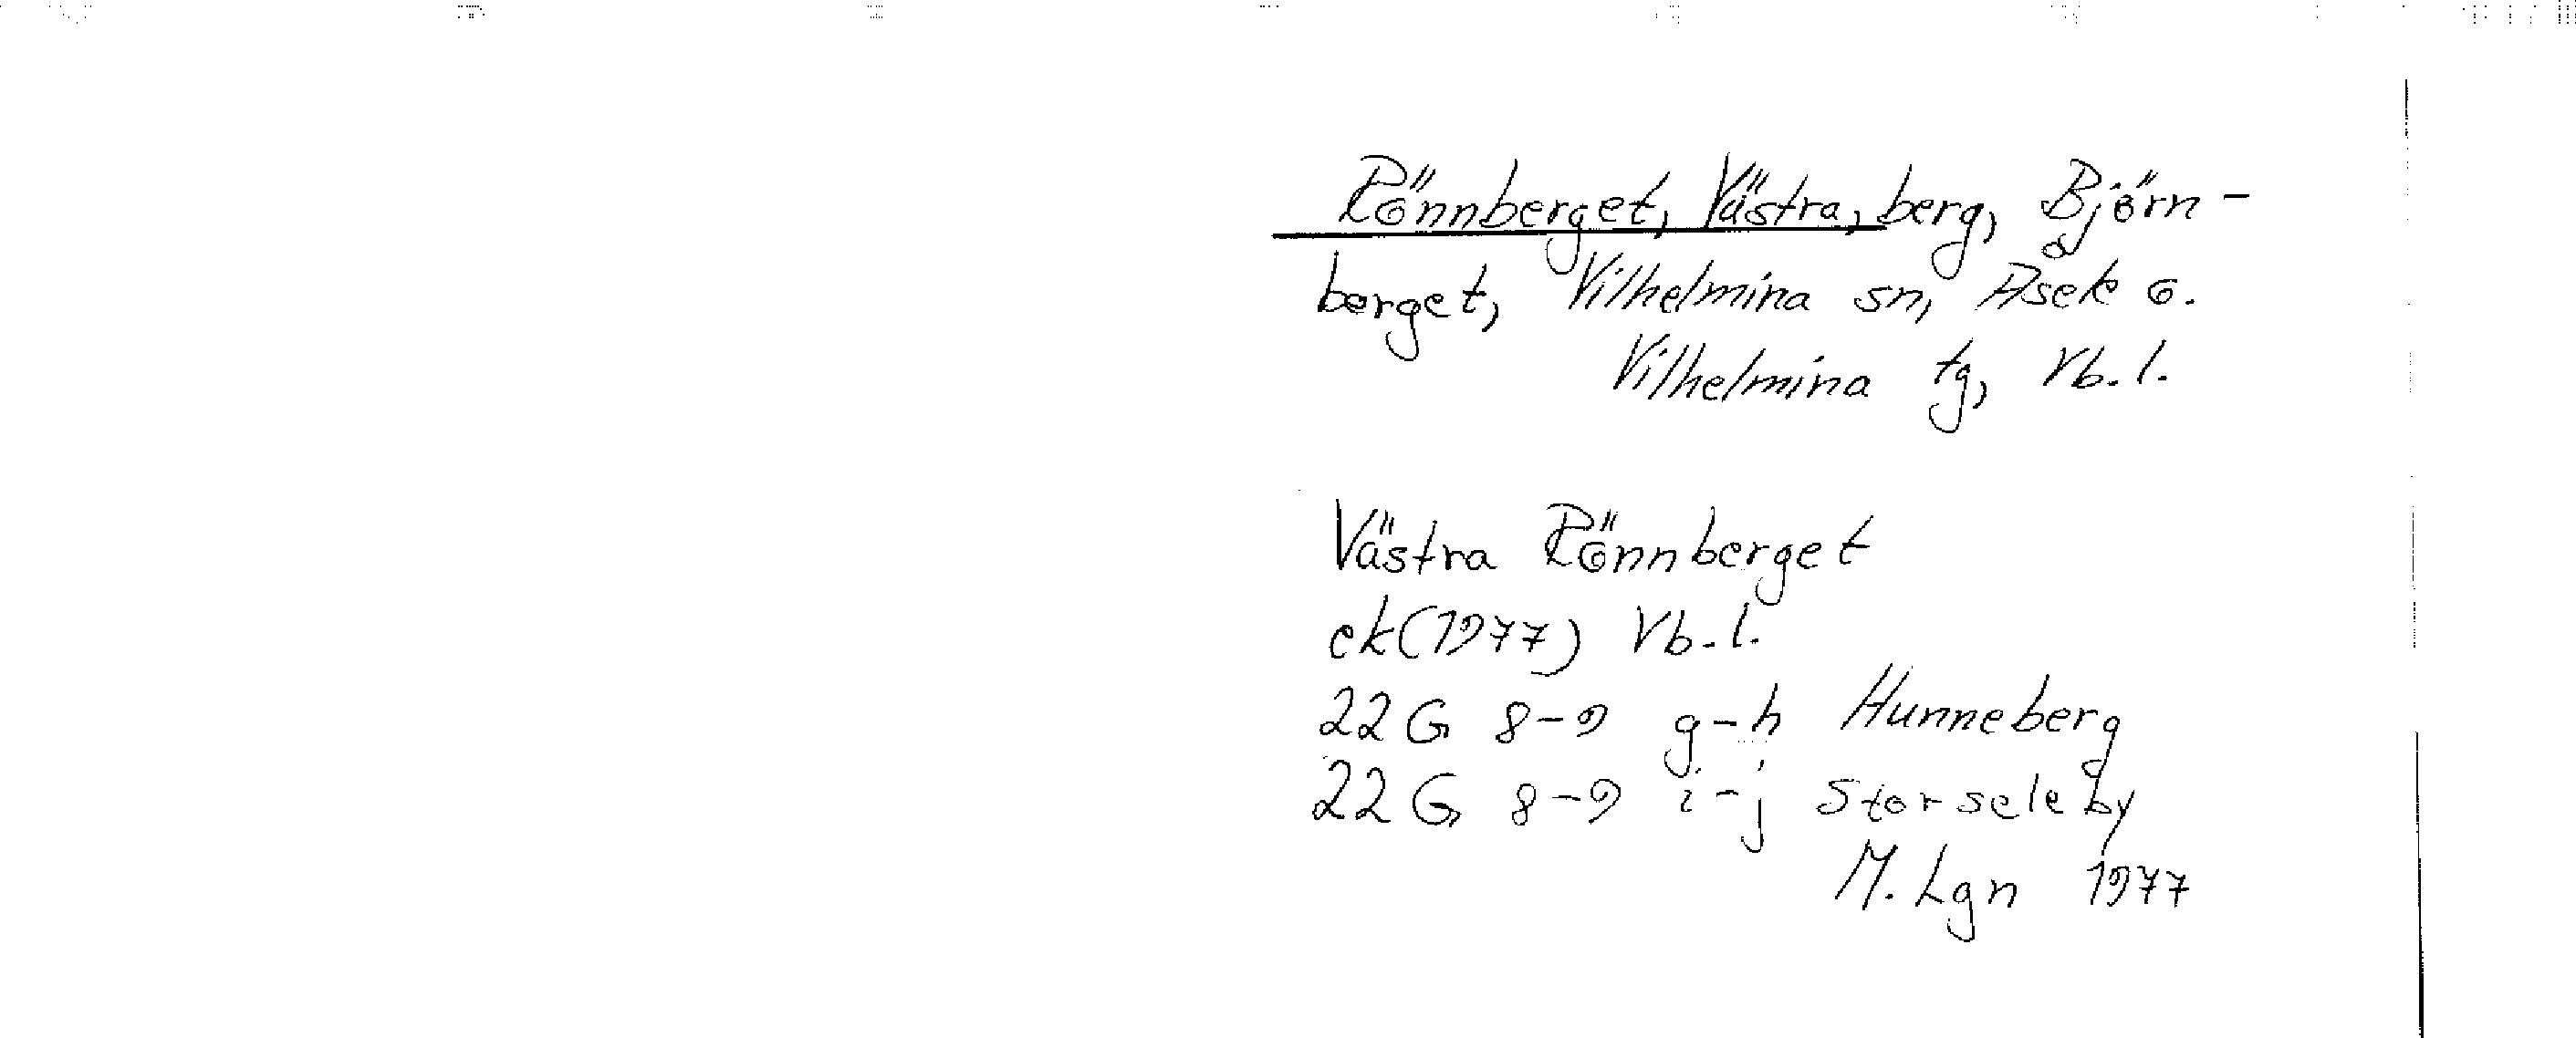 Rönnberget, Västra, berg, Björn-
berget, Vilhelmina sn, Åsele o.
Vilhelmina tg, Vb. l.
Västra Rönnberget
ek (1977) Vb. l.
22 G 8-9 g-h Hunneberg
22 G 8-9 i-j Storseleby
M. Lgn 1977